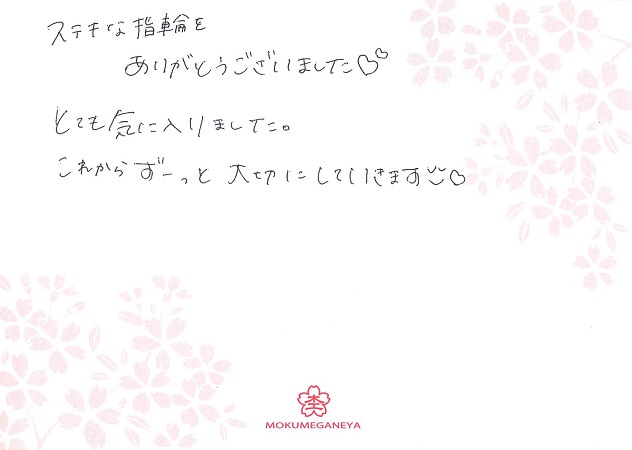 ステキな指輪を
ありがとうございました♡♡
とても気に入りました。
これからずーっと大切にしていきます♡
MOKUMEGANEYA